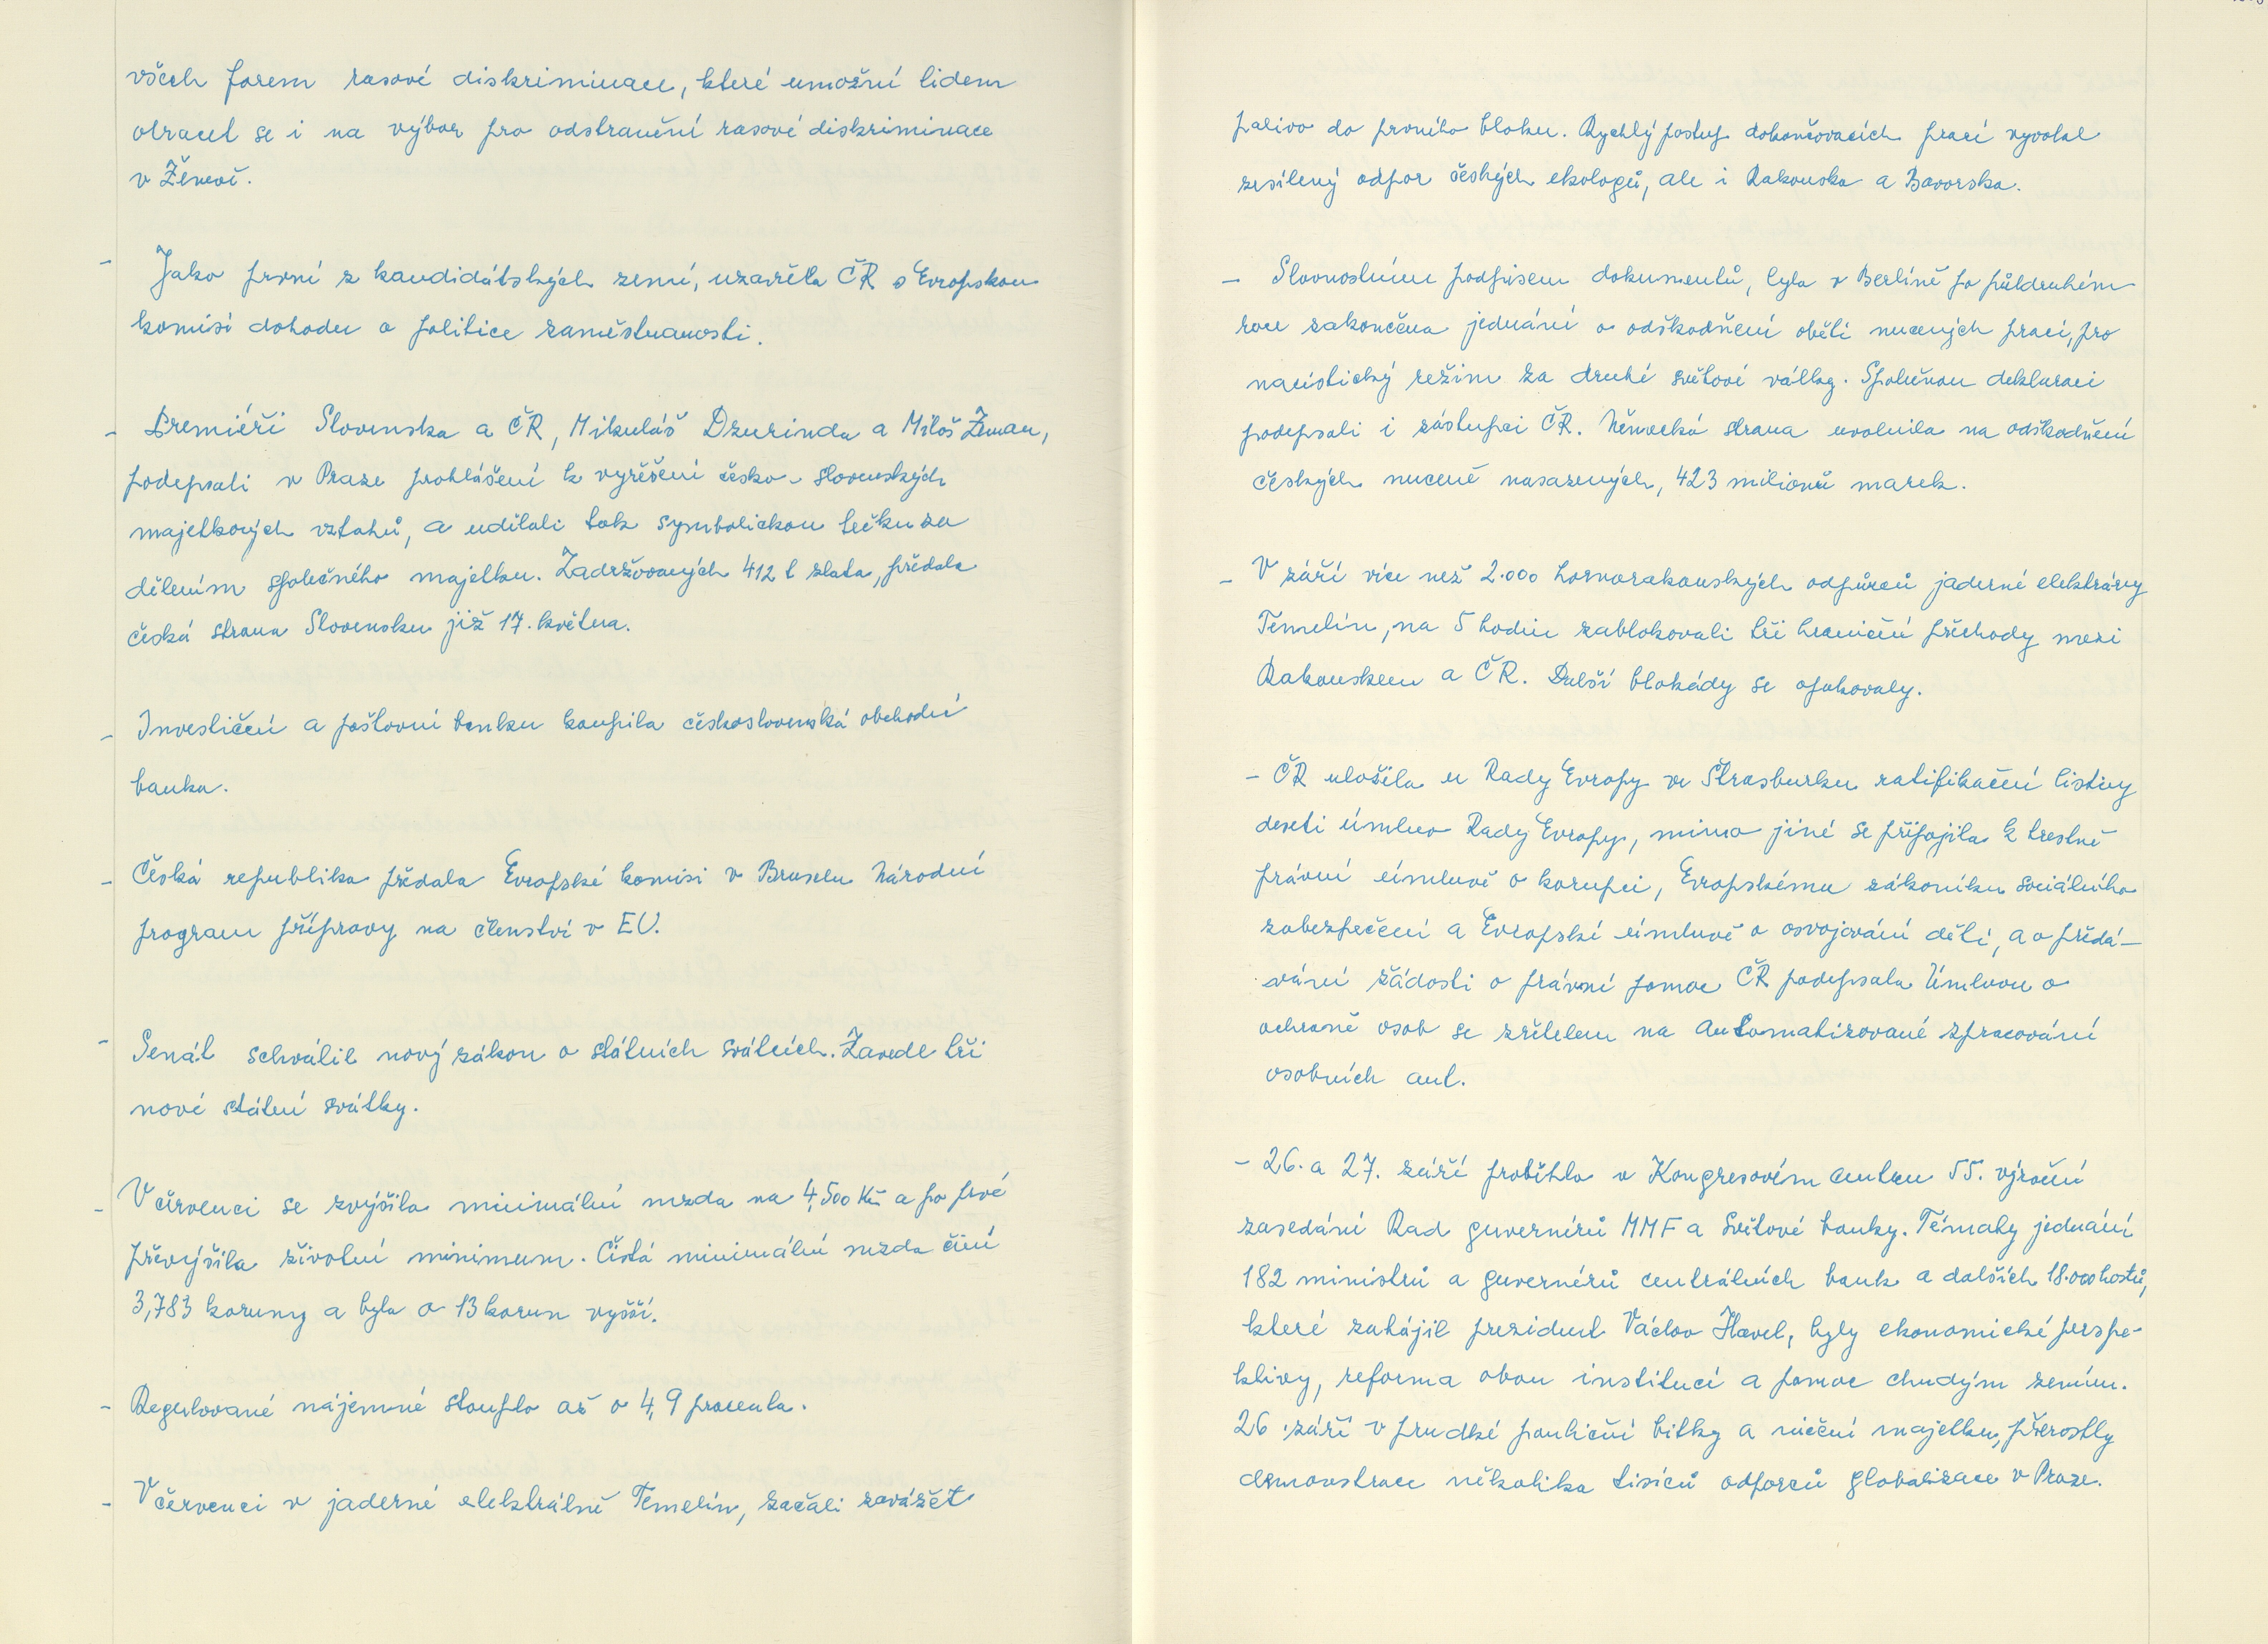 všech forem rasové diskriminace, které umožní lidem
obracet se i na výbor pro odstranění rasové diskriminace
v Ženevě.
- Jako první z kandidátských zemí, uzavřela ČR s Evropskou
komisí dohodu o politice zaměstnanosti.
- Premiéři Slovenska a ČR, Mikuláš Dzurinda a Miloš Zeman,
podepsali v Praze prohlášení k vyřešení česko-slovenských
majetkových vztahů, a udělali tak symbolickou tečku za
dělením společného majetku. Zadržovaných 412 t zlata, předala
česká strana Slovensku již 17. května.
- Investiční a poštovní banku koupila československá obchodní
banka.
- Česká republika předala Evropské komisi v Bruselu Národní
program přípravy na členství v EU.
- Senát schválil nový zákon o státních svátcích. Zavedl tři
nové státní svátky.
- V červenci se zvýšila minimální mzda na 4,500 Kč a po prvé
převýšila životní minimum. Čistá minimální mzda činí
3,783 koruny a byla o 13 korun vyšší.
- Regulované nájemné stouplo až o 4,9 procenta.
- V červenci v jaderné elektrálně Temelín, začali zavážet
palivo do prvního bloku. Rychlý postup dokončovacích prací vyvolal
zesílený odpor českých ekologů, ale i Rakouska a Bavorska.
- Slavnostním podpisem dokumentů, byla v Berlíně po půldruhém
roce zakončena jednání o odškodnění obětí nucených prací, pro
nacistický režim za druhé světové války. Společnou deklaraci
podepsali i zástupci ČR. Německá strana uvolnila na odškodnění
českých nuceně nasazených, 423 milionů marek.
- V září více než 2.000 hornorakouských odpůrců jaderné elektrárny
Temelín, na 5 hodin zablokovali tři hraniční přechody mezi
Rakouskem a ČR. Další blokády se opakovaly.
- ČR uložila u Rady Evropy ve Štrasburku ratifikační listiny
deseti úmluv Rady Evropy, mimo jiné se připojila k trestně
právní úmluvě o korupci, Evropskému zákoníku sociálního
zabezpečení a Evropské úmluvě o osvojování dětí, a o předá-
vání žádosti o právní pomoc ČR podepsala Úmluvu o
ochraně osob se zřetelem na automatizované zpracování
osobních aut.
- 26. a 27. září proběhlo v Kongresovém centru 55. výroční
zasedání Rad guvernérů MMF a Světové banky. Tématy jednání
182 ministrů a guvernérů centrálních bank a dalších 18.000 hostů,
které zahájil prezident Václav Havel, byly ekonomické perspe-
ktivy, reforma obou institucí a pomoc chudým zemím.
26. září v prudké pouliční bitky a ničení majetku, přerostly
demonstrace několika tisíců odpůrců globalizace v Praze.